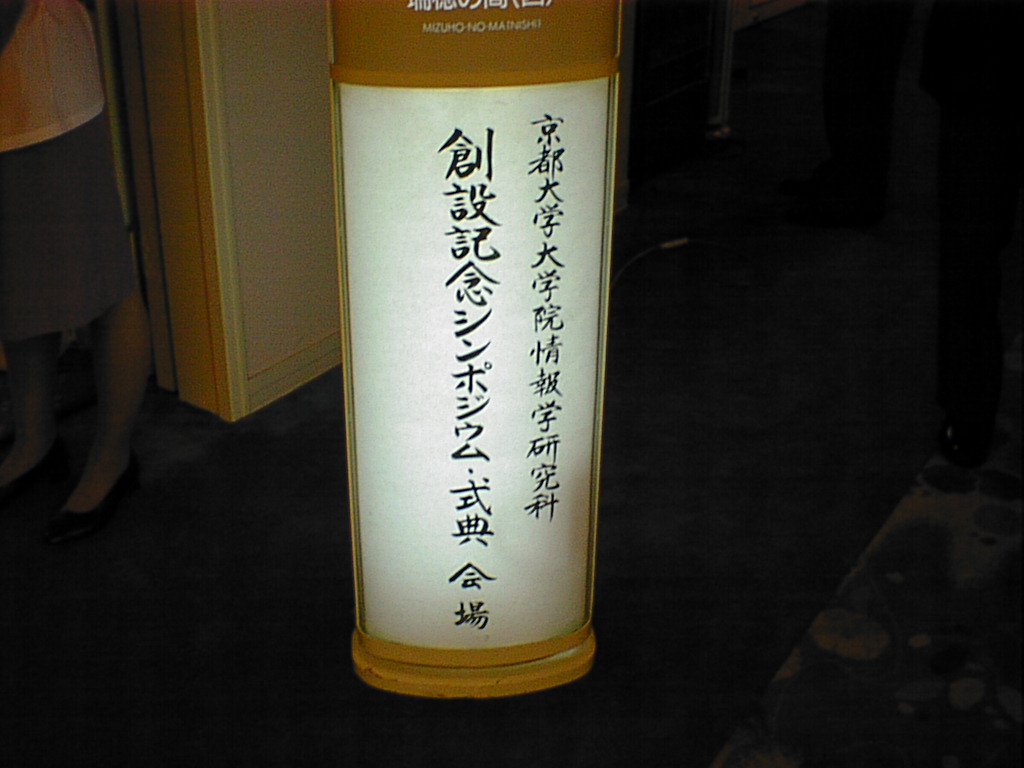 瑞穂の間(西)
MIZUHO-NO-MA(NISHI)
京都大学大学院情報学研究科
創設記念シンポジウム・式典 会場